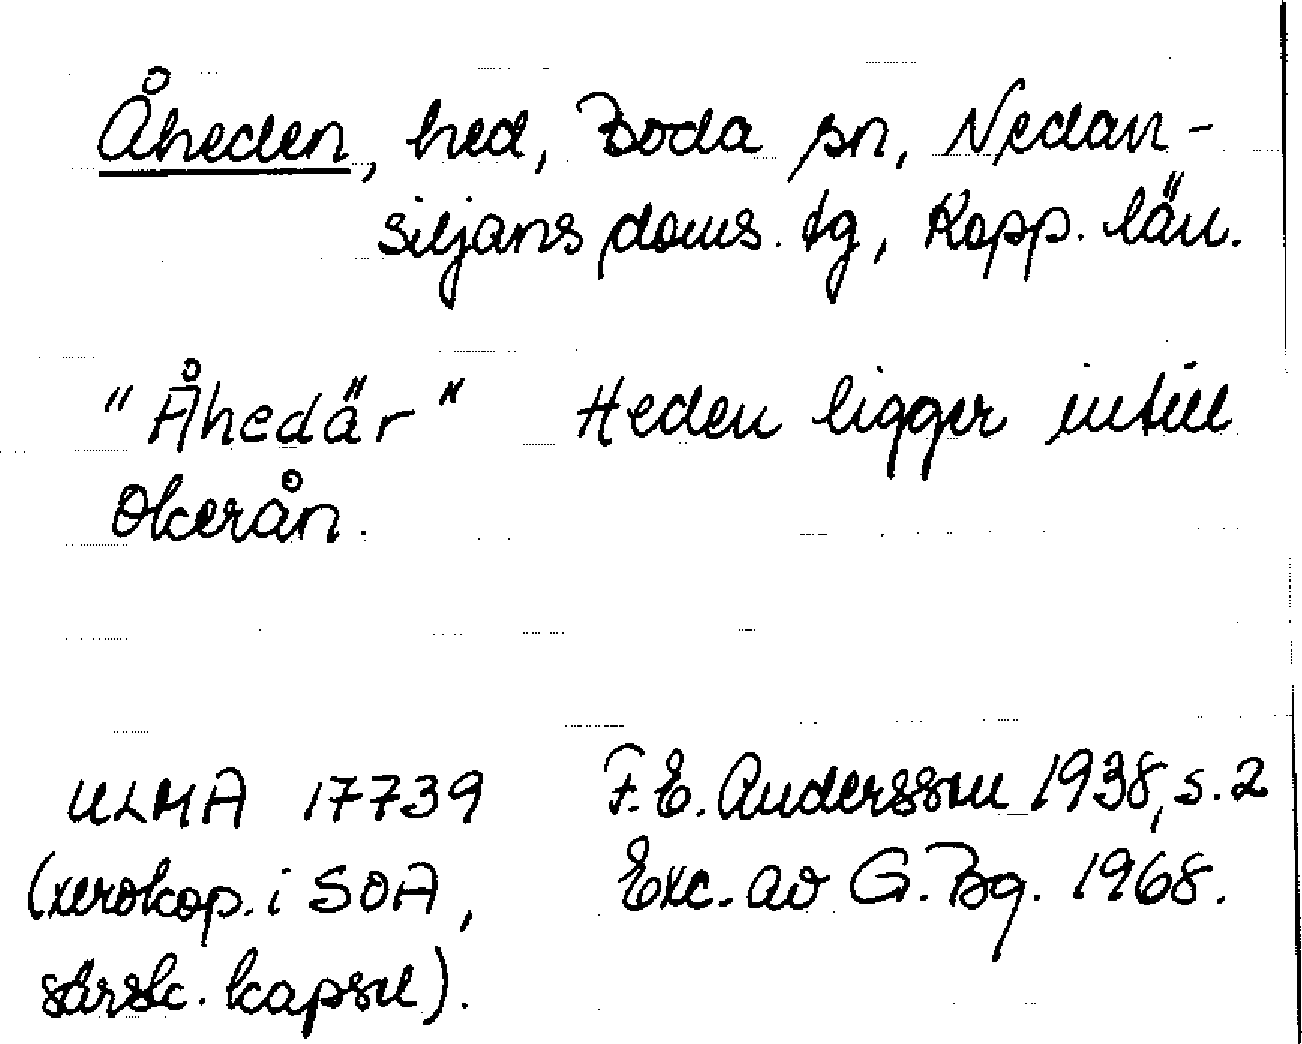 Åheden, hed, Boda sn, Nedan-
siljans doms. tg, Kopp. län.
"Åhedär" Heden ligger intill
Okerån.
ULMA 17739 F.E. Andersson 1938, s. 2
(xerokop. i SOA, Exc. av G. Bg. 1968.
särsk. kapsel).